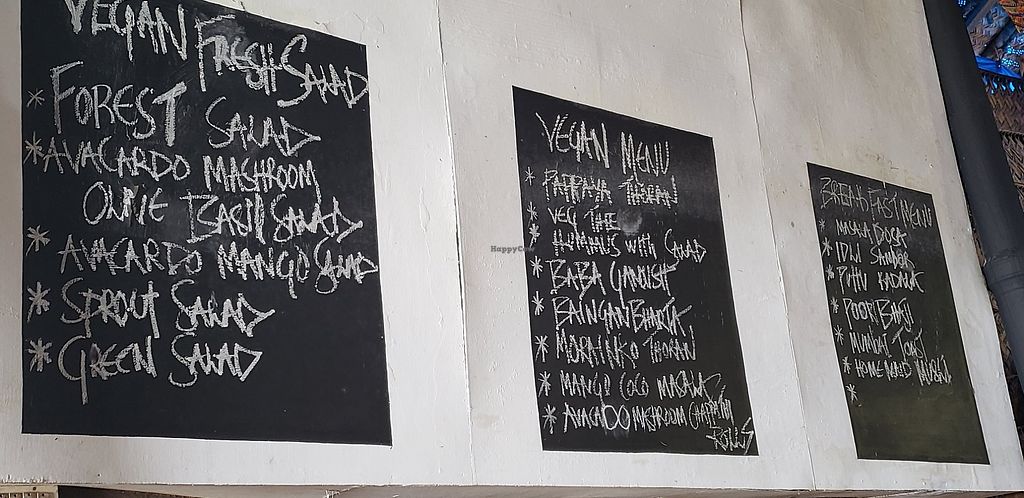 VEGAN FRESH SALAD
* FOREST SALAD
* AVACARDO MASHROOM
ONNIE BASIL SALAD
* AVACARDO MANGO SALAD
* SPROUT SALAD
* GREEN SALAD
VEGAN MENU
* PAPPAYA THORAN
* VEG THE
* HUMMUS WITH SALAD
* BABA GANUSH
* BAINGAN BHARTA
* THORAN
* MANGO COCO MASALAS
* AVACADOO MASHROOM CHAPPATHI
ROLLS
BREAKFAST MENU
* MASALA DOSA
* IDLI SAMBER
* PUTTU KADALA
* POORI BAJI
* MUMBAI TOAST
* HOME MAID MUSELI
*
HappyCow